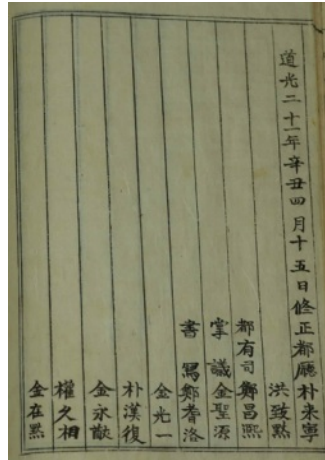 道光二十一年辛丑四月十五日修正都廳朴来寧
洪致黙
都有司鄭昌熙
掌議金聖源
書寫鄭耆洛
金光一
朴漢復
金永猷
權久相
金在黙